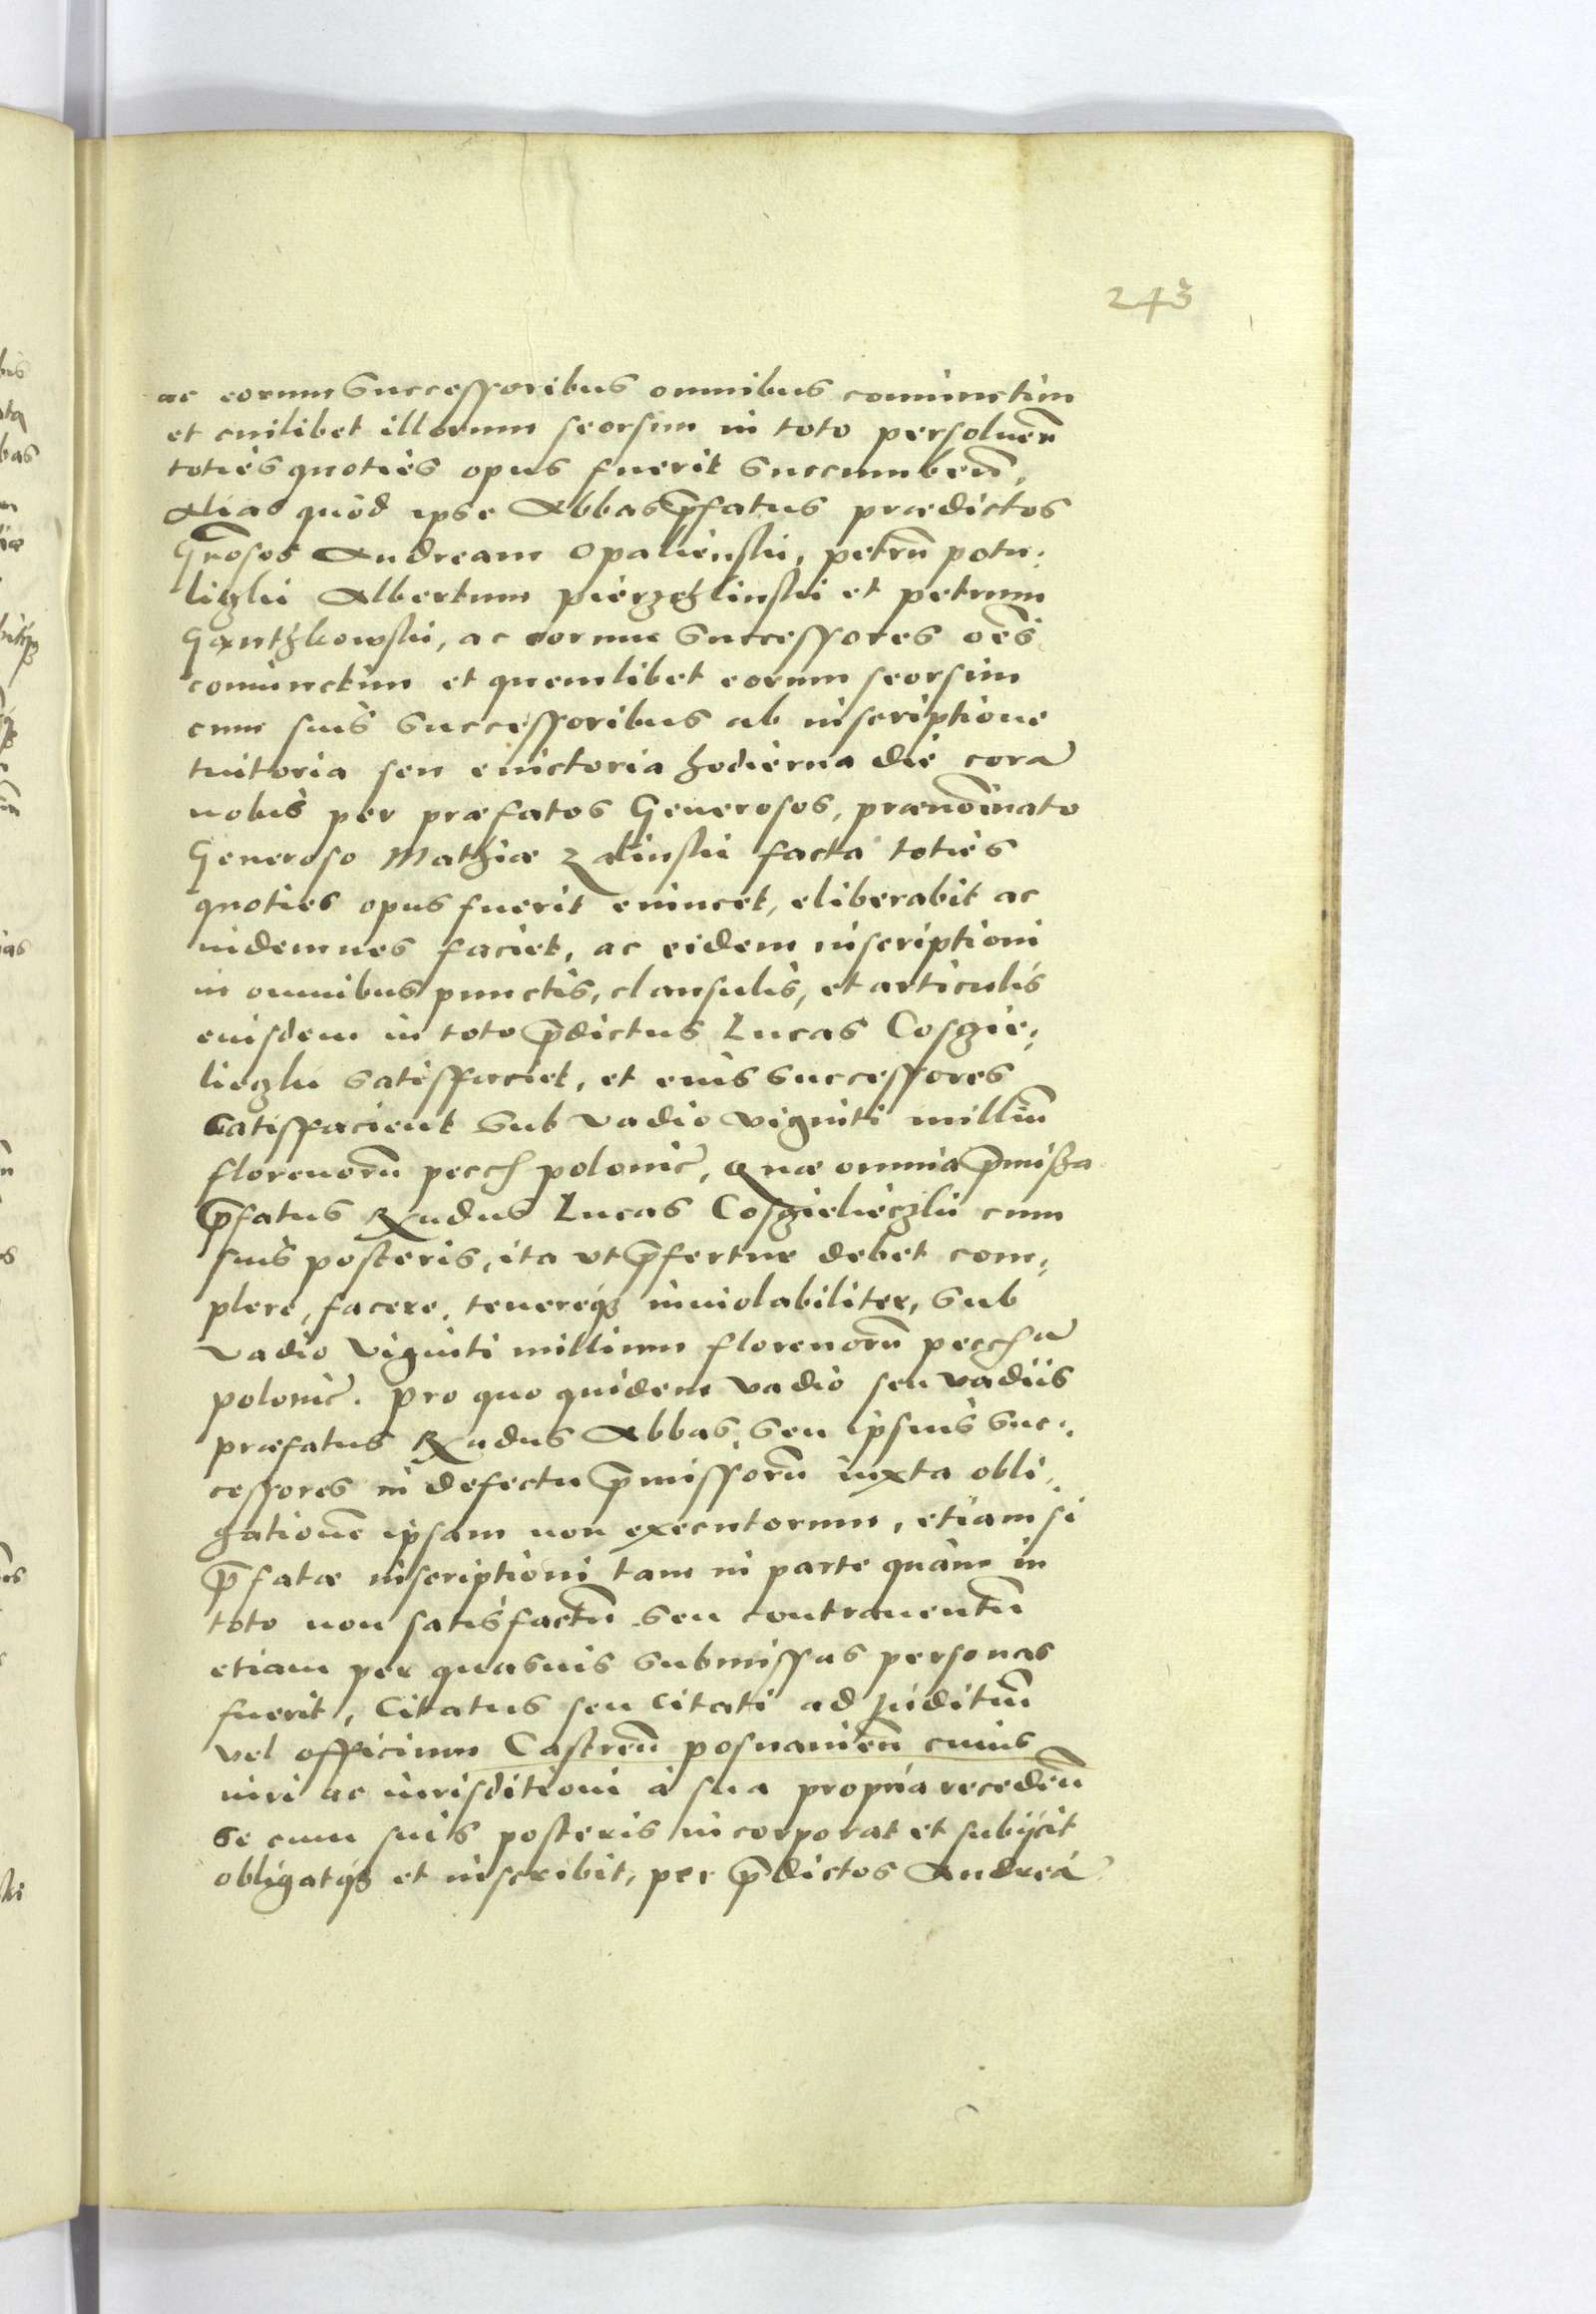 243
ac eorum Successoribus omnibus coniunctim
et cuilibet illorum seorsim in toto persoluen̄
toties quoties opus fuerit Succumben̄,
Alias quòd ipse Abbas p̄fatus prædictos
Gn̄osos Andream Opalienski, petrū potu:
lizki Albertum pierzchlinski et petrum
Gantzkowski, ac eorum Successores oēs
coniunctim et quemlibet eorum seorsim
cum suis Successoribus ab inscriptione
tuitoria seu euictoria hodierna die corā
nobis per præfatos Generosos, prænoīnato
Generoso Mathiæ Zalinski facta toties
quoties opus fuerit euincet, eliberabit ac
indemnes faciet, ac eidem inscriptioni
in omnibus punctis, clausulis, et articulis
eiusdem in toto p̄dictus Lucas Cosgie:
lieczki Satisfaciet, et eius Successores
Satisfacient Sub vadio viginti milliū
florenorū pecch polonic̄, Quæ omnia p̄missa
p̄fatus Rn̄dus Lucas Cosgielieczki cum
suis posteris, ita vt p̄fertur debet com:
plere, facere, tenereqȝ inuiolabiliter, Sub
vadio viginti millium florenorū pecchā
polonic̄. pro quo quidem vadio seu vadijs
præfatus Rn̄dus Abbas, Seu ipsius Suc:
cessores in defectu p̄missorū iuxta obli:
gationē ipsam non executorum, etiam si
p̄fatæ inscriptioni tam in parte quàm in
toto non satisfactū Seu contrauentū
etiam per quasuis Submissas personas
fuerit, Citatus seu Citati ad Juditiū
vel officium Castren̄ posnanien̄ cuius
iuri ac iurisditioni à sua propria receden̄
Se cum suis posteris incorporat et subijcit
obligatqȝ et inscribit, per p̄dictos Andreā